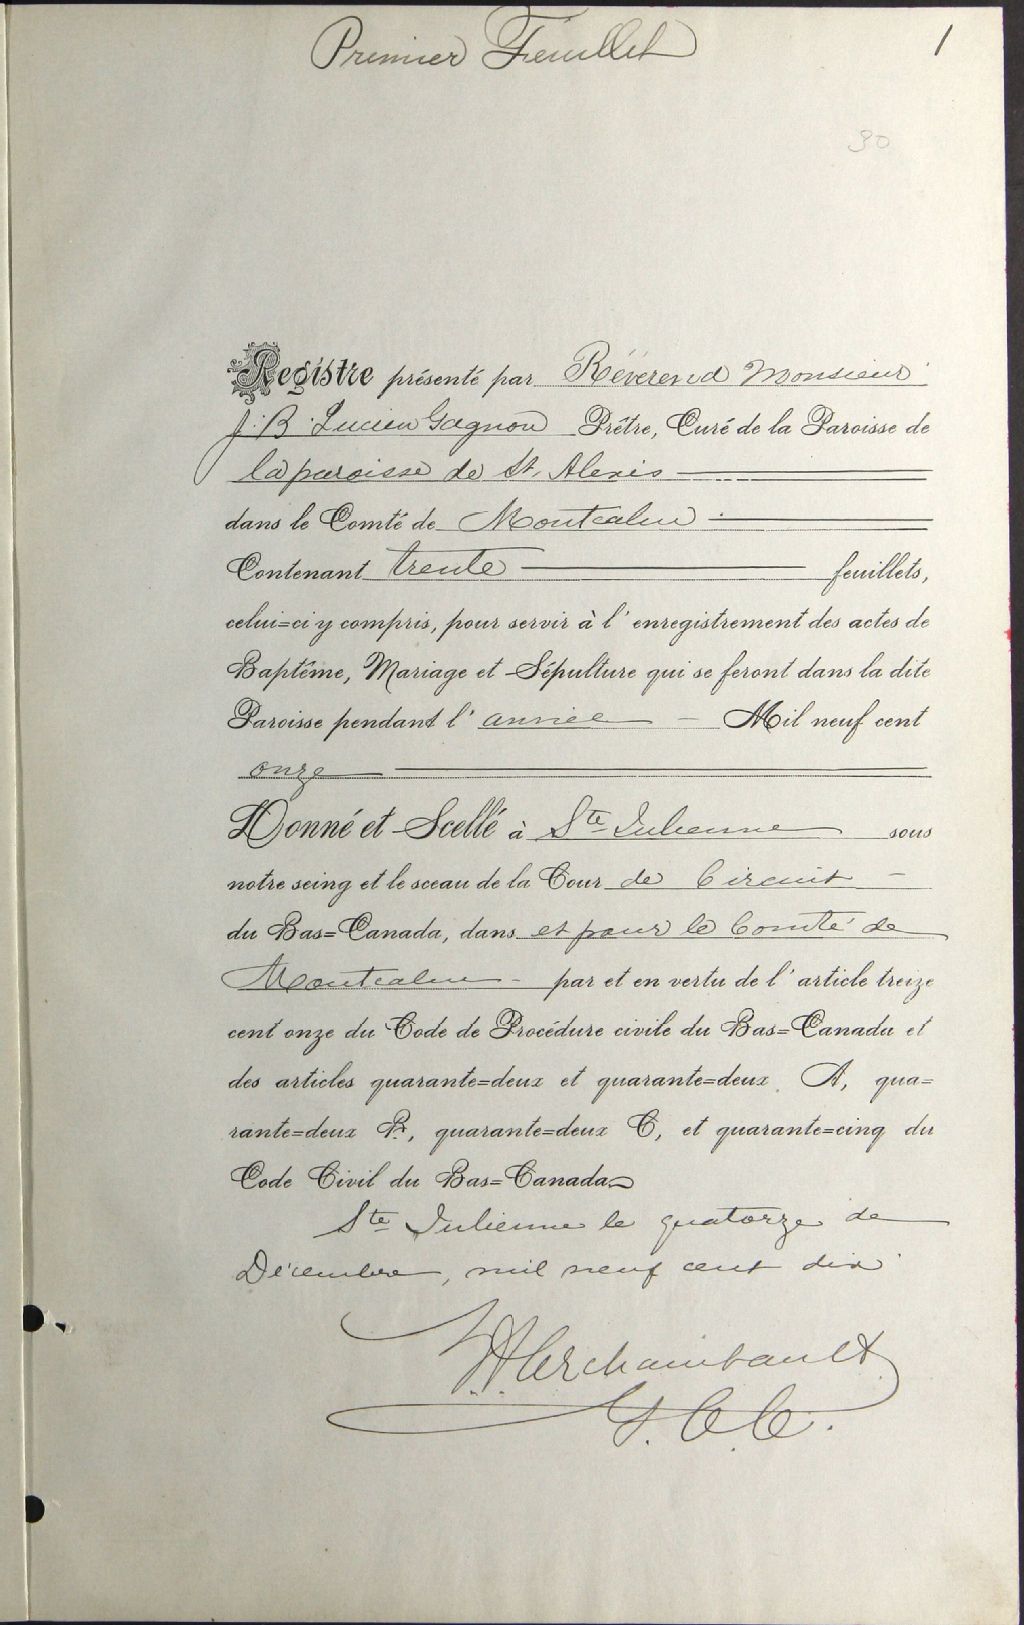 Premier Feuillet
1
30
Registre présenté par Révérend Monsieur
J. B. Lucien Gagnon Prêtre, Curé de la Paroisse de
la paroisse de St. Alexis
dans le Comté de Montcalm
Contenant trente feuillets,
celui=ci y compris, pour servir à l'enregistrement des actes de
Baptême, Mariage et Sépulture qui se feront dans la dite
Paroisse pendant l'année Mil neuf cent
onze
Donné et Scellé à Ste Julienne sous
notre seing et le sceau de la Cour de Circuit
du Bas=Canada, dans et pour le Comté de
Montcalm par et en vertu de l'article treize
cent onze du Code de Procédure civile du Bas=Canada et
des articles quarante=deux et quarante=deux A, qua=
rante=deux B, quarante=deux C, et quarante=cinq du
Code Civil du Bas=Canada
Ste Julienne le quatorze de
Décembre, mil neuf cent dix
Archambault
G. C. C.